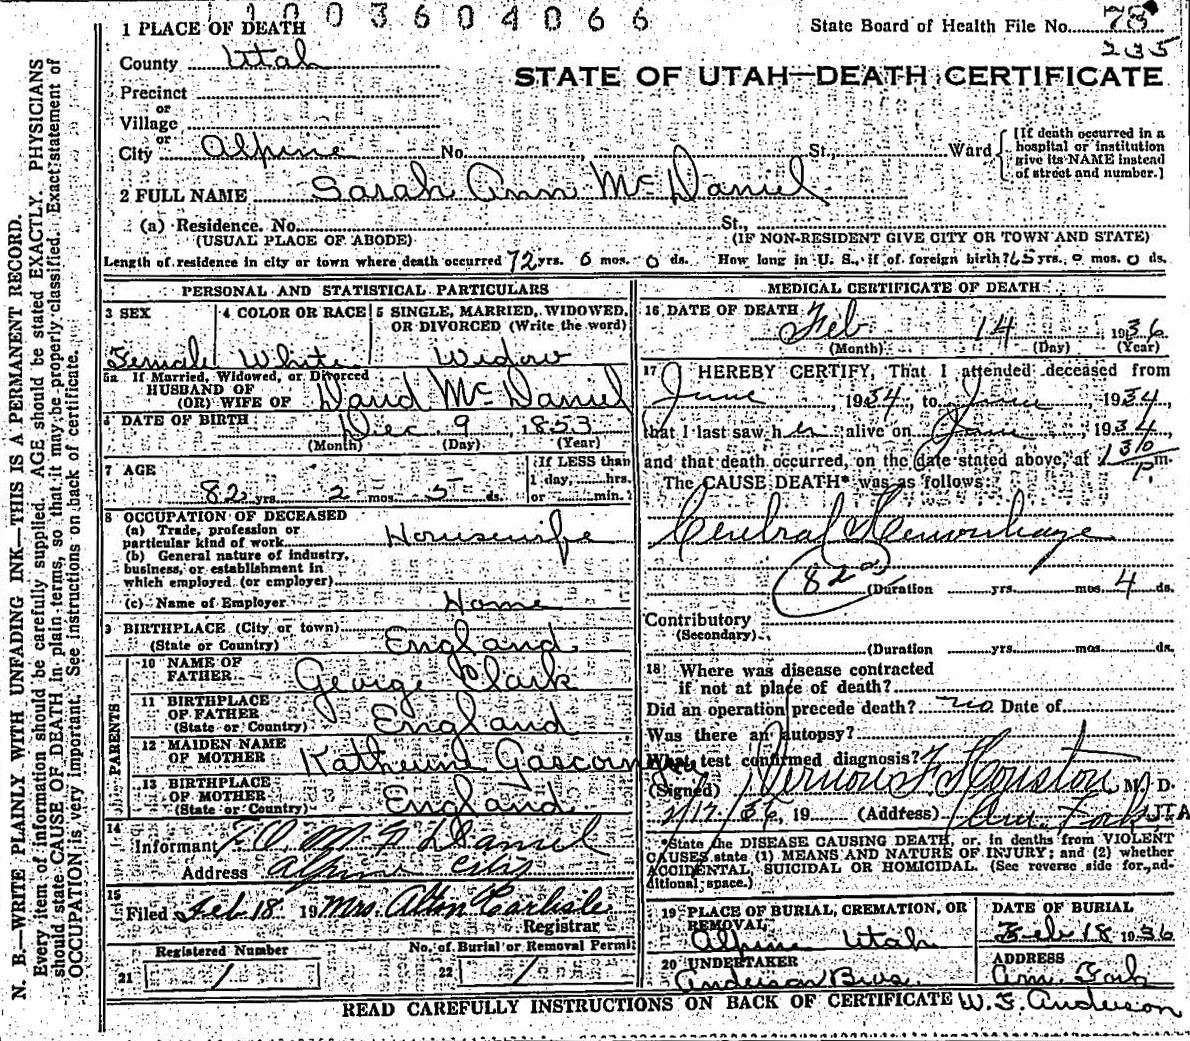 1003604066
1 PLACE OF DEATH
State Board of Health File No. 78
235
County Utah
STATE OF UTAH—DEATH CERTIFICATE
Precinct
or
Village
or
City Alpine No. St., Ward
[If death occurred in a hospital or institution give its NAME instead of street and number.]
2 FULL NAME Sarah Ann McDaniel
(a) Residence. No. St.,
(USUAL PLACE OF ABODE) (IF NON-RESIDENT GIVE CITY OR TOWN AND STATE)
Length of residence in city or town where death occurred 72 yrs. 6 mos. 0 ds. How long in U. S., if of foreign birth? 65 yrs. 0 mos. 0 ds.
PERSONAL AND STATISTICAL PARTICULARS
3 SEX 4 COLOR OR RACE 5 SINGLE, MARRIED, WIDOWED, OR DIVORCED (Write the word)
Female White Widow
5a If Married, Widowed, or Divorced
HUSBAND OF
(OR) WIFE OF David McDaniel
6 DATE OF BIRTH Dec 9, 1853
(Month) (Day) (Year)
7 AGE If LESS than
1 day, hrs.
82 yrs. 2 mos. 5 ds. or min.
8 OCCUPATION OF DECEASED
(a) Trade, profession or
particular kind of work Housewife
(b) General nature of industry,
business, or establishment in
which employed (or employer)
(c) Name of Employer Home
9 BIRTHPLACE (City or town)
(State or Country) England
PARENTS
10 NAME OF
FATHER George Clark
11 BIRTHPLACE
OF FATHER
(State or Country) England
12 MAIDEN NAME
OF MOTHER Katherine
13 BIRTHPLACE
OF MOTHER
(State or Country) England
14
Informant McDaniel
Address Alpine City
15
Filed Feb 18 19 Mrs. Alton Carlisle
Registrar
Registered Number No. of Burial or Removal Permit
21 1 22 1
MEDICAL CERTIFICATE OF DEATH
16 DATE OF DEATH
Feb 14 1936
(Month) (Day) (Year)
17 I HEREBY CERTIFY, That I attended deceased from
June, 1934, to June, 1934
that I last saw her alive on June, 1934
and that death occurred, on the date stated above, at 130 P.m.
The CAUSE DEATH* was as follows:
Cerebral Hemorrhage
82a
(Duration yrs. mos. 4 ds.
Contributory
(Secondary)
(Duration yrs. mos. ds.
18 Where was disease contracted
if not at place of death?
Did an operation precede death? no Date of
Was there an autopsy?
What test confirmed diagnosis?
(Signed) Vernon F. Houston M. D.
2/17/36, 19 (Address) Am. Fork UTA
*State the DISEASE CAUSING DEATH, or, in deaths from VIOLENT
CAUSES, state (1) MEANS AND NATURE OF INJURY; and (2) whether
ACCIDENTAL, SUICIDAL OR HOMICIDAL. (See reverse side for additional space.)
19 PLACE OF BURIAL, CREMATION, OR REMOVAL DATE OF BURIAL
Alpine Utah Feb 18 1936
20 UNDERTAKER ADDRESS
Anderson Bros. Am. Fork
READ CAREFULLY INSTRUCTIONS ON BACK OF CERTIFICATE W. S. Anderson
N. B.—WRITE PLAINLY WITH UNFADING INK—THIS IS A PERMANENT RECORD.
Every item of information should be carefully supplied. AGE should be stated EXACTLY. PHYSICIANS
should state CAUSE OF DEATH in plain terms, so that it may be properly classified. Exact statement of
OCCUPATION is very important. See instructions on back of certificate.